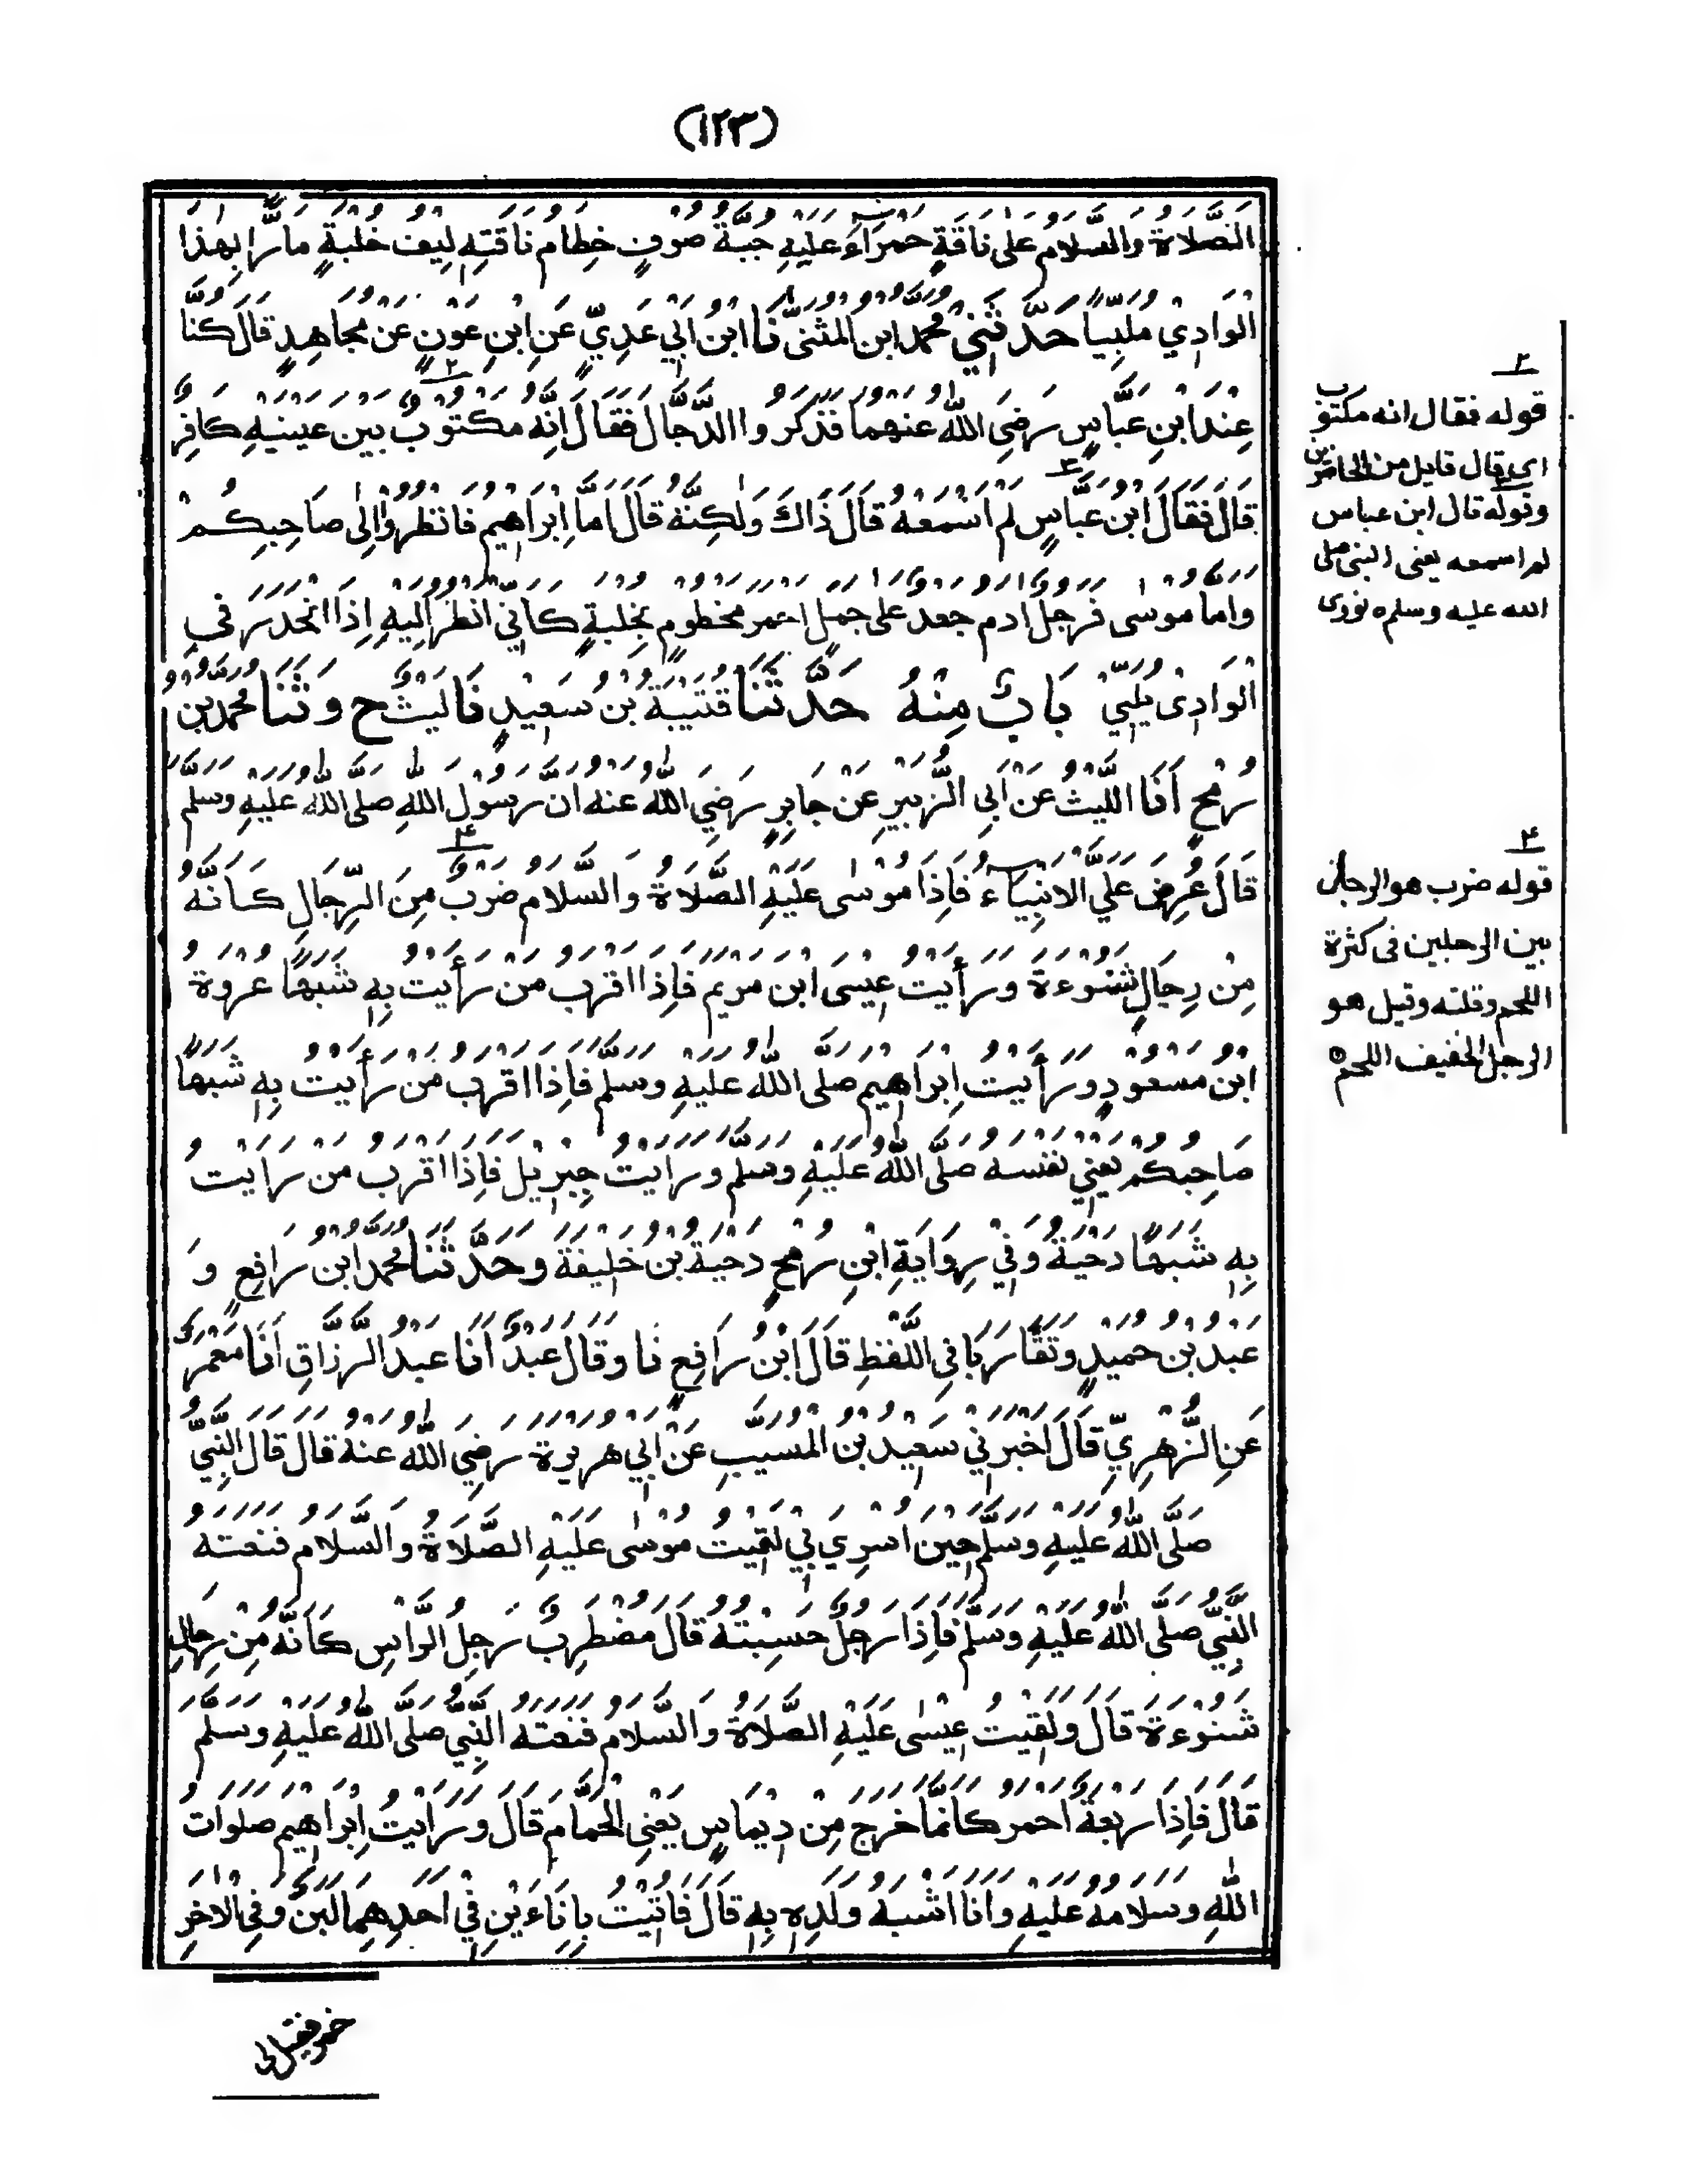 (١٢٣)
الصَّلَاةُ وَالسَّلَامُ عَلَى نَاقَةٍ حَمْرَاءَ عَلَيْهِ جُبَّةُ صُوْفٍ خِطَامُ نَاقَتِهِ لِيْفُ خُلْبَةٍ مَارًّا بِهٰذَا
الْوَادِيْ مُلَبِّيًا حَدَّثَنِيْ مُحَمَّدُ ابْنُ الْمُثَنّٰى نَا ابْنُ اَبِيْ عَدِيٍّ عَنِ ابْنِ عَوْنٍ عَنْ مُجَاهِدٍ قَالَ كُنَّا
عِنْدَ ابْنِ عَبَّاسٍ رَضِيَ اللّٰهُ عَنْهُمَا فَذَكَرُوا الدَّجَّالَ فَقَالَ اِنَّهُ مَكْتُوْبٌ بَيْنَ عَيْنَيْهِ كَافِرٌ
قَالَ فَقَالَ ابْنُ عَبَّاسٍ لَمْ اَسْمَعْهُ قَالَ ذَاكَ وَلٰكِنَّهُ قَالَ اَمَّا اِبْرَاهِيْمُ فَانْظُرُوْا اِلٰى صَاحِبِكُمْ
وَاَمَّا مُوْسٰى فَرَجُلٌ اٰدَمُ جَعْدٌ عَلٰى جَمَلٍ اَحْمَرَ مَخْطُوْمٍ بِخُلْبَةٍ كَاَنِّيْ اَنْظُرُ اِلَيْهِ اِذَا انْحَدَرَ فِي
الْوَادِيْ يُلَبِّيْ بَابٌ مِنْهُ حَدَّثَنَا قُتَيْبَةُ بْنُ سَعِيْدٍ نَا لَيْثٌ ح وَ ثَنَا مُحَمَّدُ بْنُ
رُمْحٍ اَنَا اللَّيْثُ عَنْ اَبِي الزُّبَيْرِ عَنْ جَابِرٍ رَضِيَ اللّٰهُ عَنْهُ اَنَّ رَسُوْلَ اللّٰهِ صَلَّى اللّٰهُ عَلَيْهِ وَسَلَّمَ
قَالَ عُرِضَ عَلَيَّ الْاَنْبِيَاءُ فَاِذَا مُوْسٰى عَلَيْهِ الصَّلَاةُ وَالسَّلَامُ ضَرْبٌ مِنَ الرِّجَالِ كَاَنَّهُ
مِنْ رِجَالِ شَنُوْءَةَ وَرَأَيْتُ عِيْسَى ابْنَ مَرْيَمَ فَاِذَا اَقْرَبُ مَنْ رَأَيْتُ بِهِ شَبَهًا عُرْوَةُ
ابْنُ مَسْعُوْدٍ وَرَأَيْتُ اِبْرَاهِيْمَ صَلَّى اللّٰهُ عَلَيْهِ وَسَلَّمَ فَاِذَا اَقْرَبُ مَنْ رَأَيْتُ بِهِ شَبَهًا
صَاحِبُكُمْ يَعْنِيْ نَفْسَهُ صَلَّى اللّٰهُ عَلَيْهِ وَسَلَّمَ وَرَاَيْتُ جِبْرِيْلَ فَاِذَا اَقْرَبُ مَنْ رَاَيْتُ
بِهِ شَبَهًا دَحْيَةُ وَفِيْ رِوَايَةِ ابْنِ رُمْحٍ دَحْيَةُ بْنُ خَلِيْفَةَ وَحَدَّثَنَا مُحَمَّدُ ابْنُ رَافِعٍ وَ
عَبْدُ بْنُ حُمَيْدٍ وَتَقَارَبَا فِي اللَّفْظِ قَالَ ابْنُ رَافِعٍ نَا وَقَالَ عَبْدٌ اَنَا عَبْدُ الرَّزَّاقِ اَنَا مَعْمَرٌ
عَنِ الزُّهْرِيِّ قَالَ اَخْبَرَنِيْ سَعِيْدُ بْنُ الْمُسَيَّبِ عَنْ اَبِيْ هُرَيْرَةَ رَضِيَ اللّٰهُ عَنْهُ قَالَ قَالَ النَّبِيُّ
صَلَّى اللّٰهُ عَلَيْهِ وَسَلَّمَ حِيْنَ اُسْرِيَ بِيْ لَقِيْتُ مُوْسٰى عَلَيْهِ الصَّلَاةُ وَالسَّلَامُ فَنَعَتَهُ
النَّبِيُّ صَلَّى اللّٰهُ عَلَيْهِ وَسَلَّمَ فَاِذَا رَجُلٌ حَسِبْتُهُ قَالَ مُضْطَرِبٌ رَجِلُ الرَّاْسِ كَاَنَّهُ مِنْ رِجَالِ
شَنُوْءَةَ قَالَ وَلَقِيْتُ عِيْسٰى عَلَيْهِ الصَّلَاةُ وَالسَّلَامُ فَنَعَتَهُ النَّبِيُّ صَلَّى اللّٰهُ عَلَيْهِ وَسَلَّمَ
قَالَ فَاِذَا رَبْعَةٌ اَحْمَرُ كَاَنَّمَا خَرَجَ مِنْ دِيْمَاسٍ يَعْنِي الْحَمَّامَ قَالَ وَرَاَيْتُ اِبْرَاهِيْمَ صَلَوَاتُ
اللّٰهِ وَسَلَامُهُ عَلَيْهِ وَاَنَا اَشْبَهُ وَلَدِهِ بِهِ قَالَ فَاُتِيْتُ بِاِنَاءَيْنِ فِيْ اَحَدِهِمَا لَبَنٌ وَفِي الْاٰخَرِ
٢
قوله فقال انه مكتوب
اي قال قايل من الحاضرين
وقوله قال ابن عباس
لم اسمعه يعني النبي صلى
الله عليه وسلم ه نووى
٤
قوله ضرب هو الرجل
بين الرجلين فى كثرة
اللحم وقلته وقيل هو
الرجل الخفيف اللحم
خمر فقيل لى